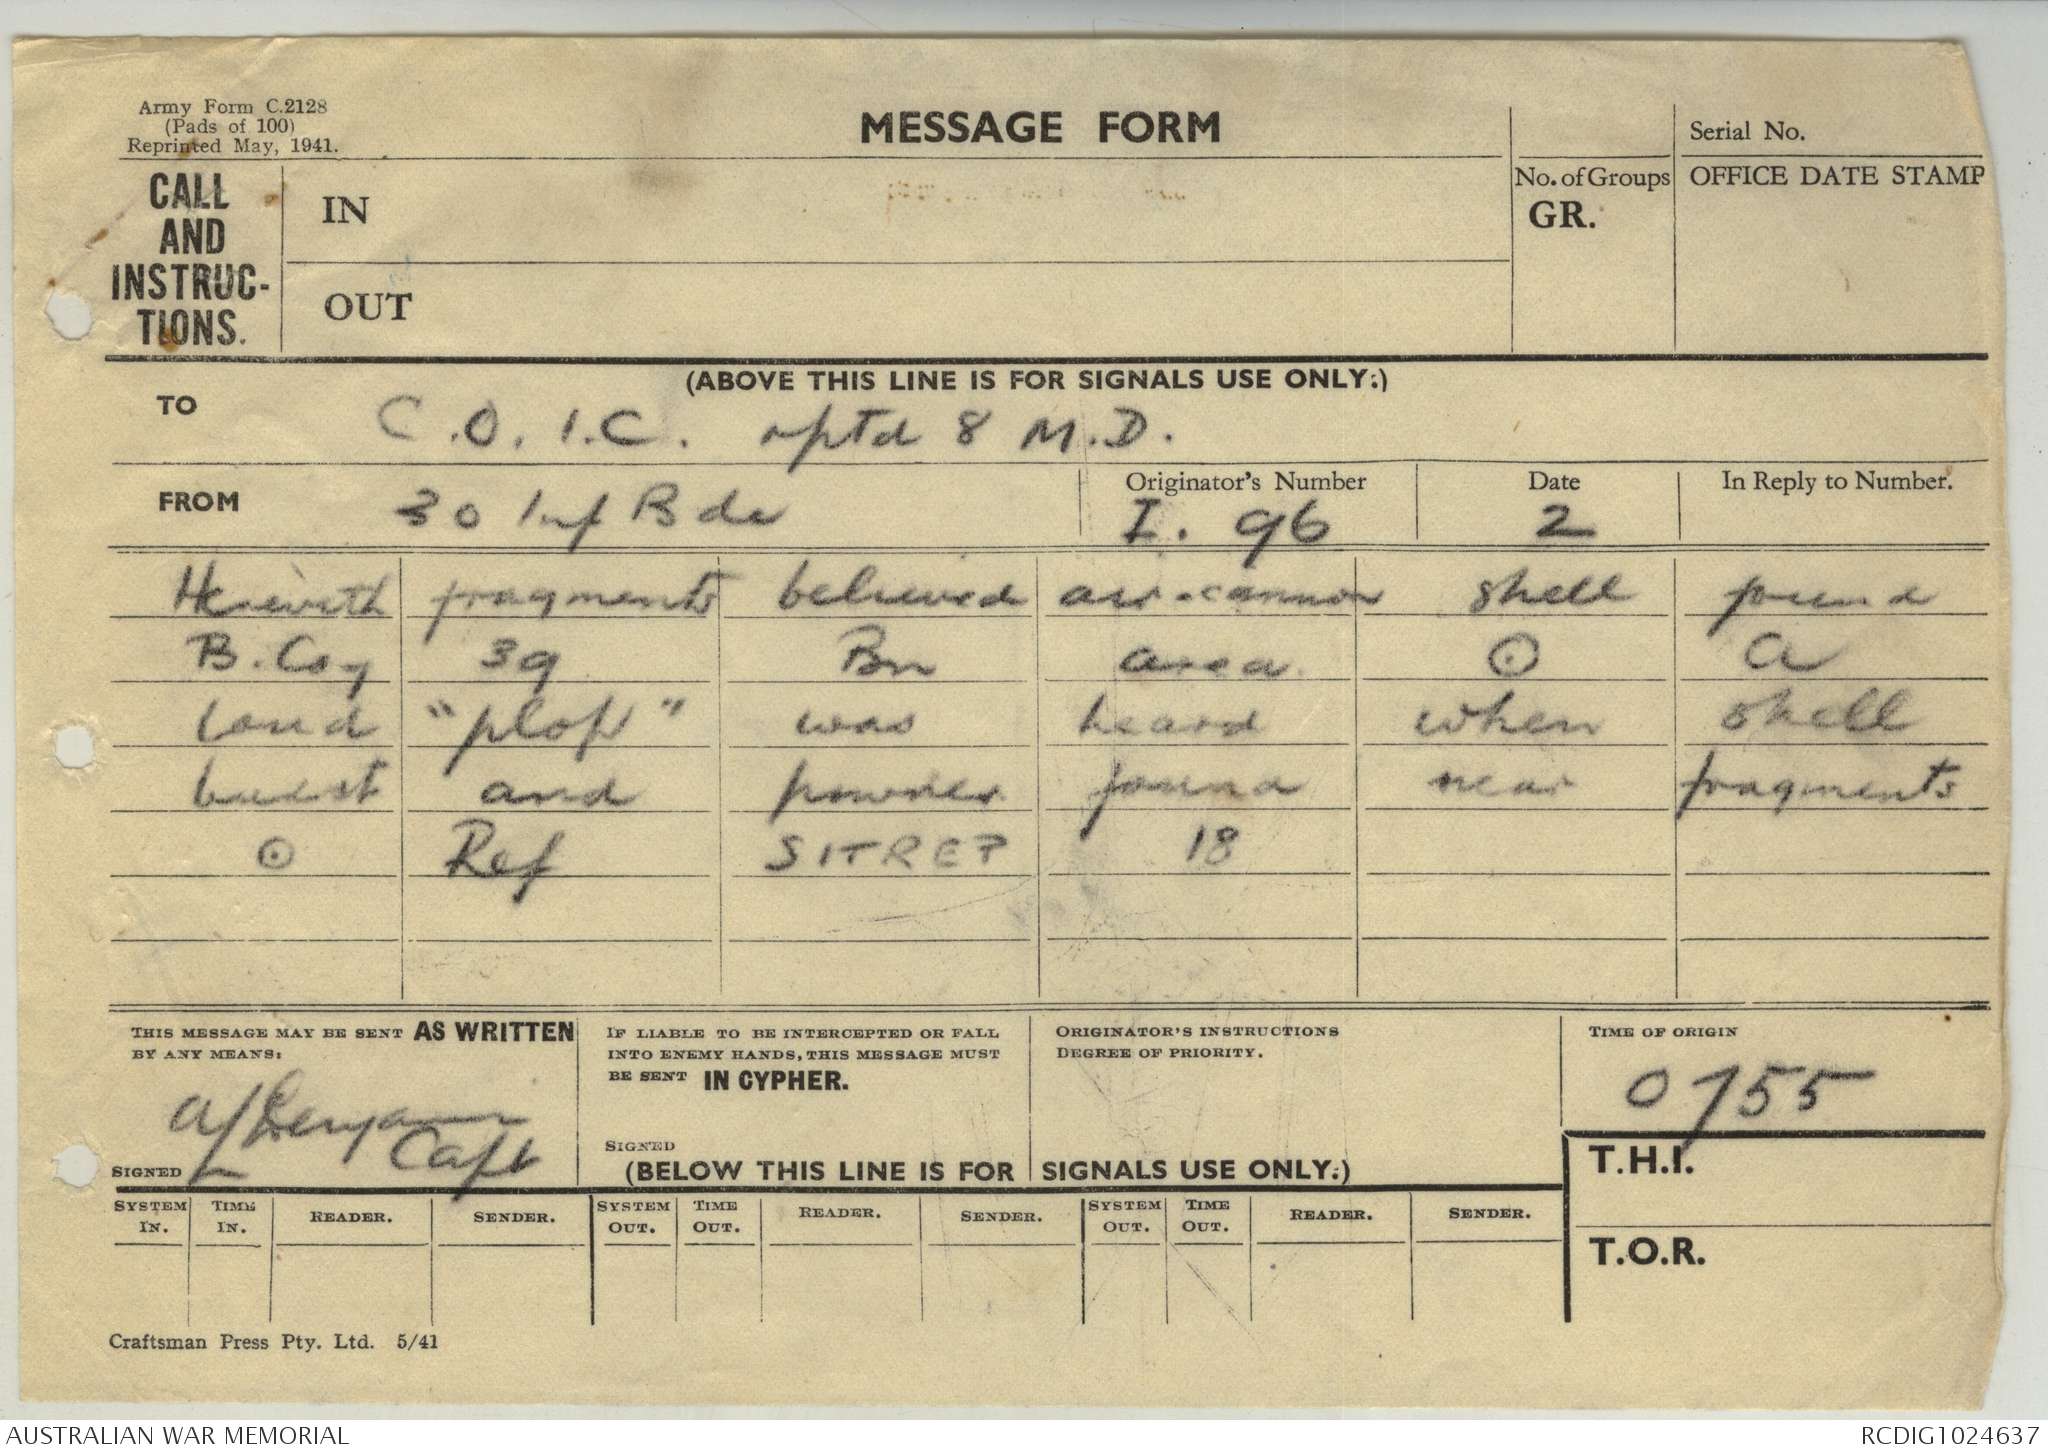 Army Form C.2128
(Pads of 100)
Reprinted May, 1941.
MESSAGE FORM
Serial No.
CALL
AND
INSTRUC-
TIONS.
IN
OUT
No. of Groups
GR.
OFFICE DATE STAMP
(ABOVE THIS LINE IS FOR SIGNALS USE ONLY.)
TO C.O.I.C. rptd 8 M.D.
FROM 30 Inf Bde
Originator's Number I. 96
Date 2
In Reply to Number.
Herewith fragments believed air-cannon shell found
B. Coy 39 Bn area ⊙ A
loud "plop" was heard when shell
burst and powder found near fragments
⊙ Ref SITREP 18
THIS MESSAGE MAY BE SENT AS WRITTEN
BY ANY MEANS:
Capt
SIGNED
IF LIABLE TO BE INTERCEPTED OR FALL
INTO ENEMY HANDS, THIS MESSAGE MUST
BE SENT IN CYPHER.
SIGNED
ORIGINATOR'S INSTRUCTIONS
DEGREE OF PRIORITY.
TIME OF ORIGIN
0755
(BELOW THIS LINE IS FOR SIGNALS USE ONLY.)
T.H.I.
T.O.R.
SYSTEM IN. TIME IN. READER. SENDER. SYSTEM OUT. TIME OUT. READER. SENDER. SYSTEM OUT. TIME OUT. READER. SENDER.
Craftsman Press Pty. Ltd. 5/41
AUSTRALIAN WAR MEMORIAL
RCDIG1024637